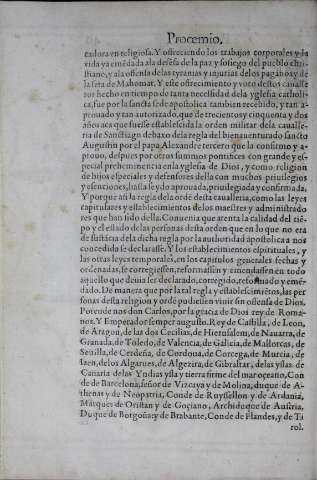 Procemio.
cadora en religiosa. Y offreciendo los trabajos corporales y la
vida ya emēdada ala defēsa de la paz y sosiego del pueblo chri-
stiano, y ala offensa de las tyranias y injurias de los paganos y de
la seta de Mahomat. Y este offrescimiento y voto destos caualle
ros hecho en tiempo de tanta necessidad dela yglesia catholi-
ca, fue por la sancta sede apostolica tambien recebido, y tan a-
prouado y tan autorizado, que de trecientos y cinquenta y dos
años aca que fuesse establescida la orden militar dela caualle-
ria de Sanctiago debaxo dela regla del bienauenturado sancto
Augustin por el papa Alexandre tercero que la confirmo y a-
prouo, despues por otros summos pontifices con grande y es-
pecial prehemiencia en la yglesia de Dios, y como religion
de hijos especiales y defensores della con muchos priuilegios
y esenciones, ha sido y es aprouada, priuilegiada y confirmada.
Y porque assi la regla dela ordē desta caualleria, como las leyes
capitulares y establecimientos de los maestres y administrado
res que han sido della. Conuenia que atenta la calidad del tiē-
po y el estado de las personas desta orden que en lo que no era
de sustācia dela dicha regla por la authoridad apostolica a nos
concedida se declarasse. Y los establecimientos espirituales, y
las otras leyes temporales, en los capitulos generales fechas y
ordenadas, se corregiessen, reformassen y emendassen en todo
aquello que deuia ser declarado, corregido, reformado y emē-
dado. De manera que por la tal regla y establescimiētos, las per
sonas desta religion y ordē pudiesen viuir sin offensa de Dios.
Porende nos don Carlos, por la gracia de Dios rey de Roma-
nos, Y Emperador semper augusto. Rey de Castilla, de Leon,
de Aragon, de las dos Cecilias, de Hierusalem, de Nauarra, de
Granada, de Toledo, de Valencia, de Galicia, de Mallorcas, de
Seuilla, de Cerdeña, de Cordoua, de Corcega, de Murcia, de
Iaen, de los Algarues, de Algezira, de Gibraltar, de las yslas de
Canaria de las Yndias ysla y tierra firme del mar oceano, Con
de de Barcelona, señor de Vizcaya y de Molina, duque de A-
thenas y de Neopatria, Conde de Ruysellon y de Ardania,
Marques de Oristan y de Gociano, Archiduque de Austria,
Duque de Borgoña y de Brabante, Conde de Flandes, y de Ti
rol.